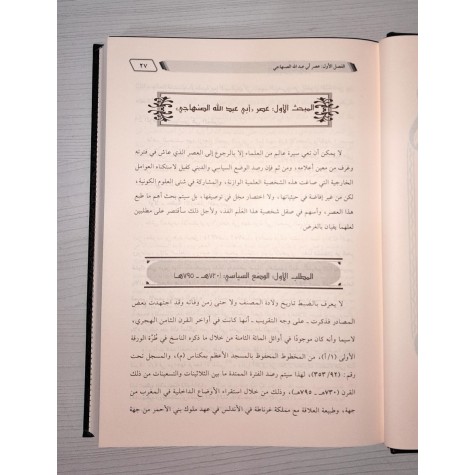 الفصل الأول: عصر أبي عبد الله الصنهاجي
٢٧
المبحث الأول: عصر أبي عبد الله الصنهاجي:
لا يمكن أن نعي سيرة عالم من العلماء إلا بالرجوع إلى العصر الذي عاش في فترته
وغرف من معين أعلامه، ومن ثم فإن رصد الوضع السياسي والديني كفيل لاستكناه العوامل
الخارجية التي صاغت هذه الشخصية العلمية الوازنة، والمشاركة في شتى العلوم الكونية،
لكن من غير إفاضة في حيثياتها، ولا اختصار مخل في توصيفها، بل يكفي بحث أهم ما طبع
هذا العصر، وأسهم في صقل شخصية هذا العلم الفذ، ولأجل ذلك سأقتصر على مطلبين
لعلهما يفيان بالغرض:
المطلب الأول: الوضع السياسي: (٧٣٠هـ ـ ٧٩٥هـ)
لا يعرف بالضبط تاريخ ولادة المصنف ولا حتى زمن وفاته وقد اجتهدت بعض
المصادر فذكرت ـ على وجه التقريب ـ أنها كانت في أواخر القرن الثامن الهجري،
لاسيما وأنه كان موجودًا في أوائل المائة الثامنة من خلال ما ذكره الناسخ في طُرَّة الورقة
الأولى (١/أ)، من المخطوط المحفوظ بالمسجد الأعظم بمكناس (م)، والمسجل تحت
رقم: (٣٥٣/٩٢)، لهذا سيتم رصد الفترة الممتدة ما بين الثلاثينات والتسعينات من ذلك
القرن (٧٣٠هـ ـ ٧٩٥هـ)، وذلك من خلال استقراء الأوضاع الداخلية في المغرب من
جهة، وطبيعة العلاقة مع مملكة غرناطة في الأندلس في عهد ملوك بني الأحمر من جهة